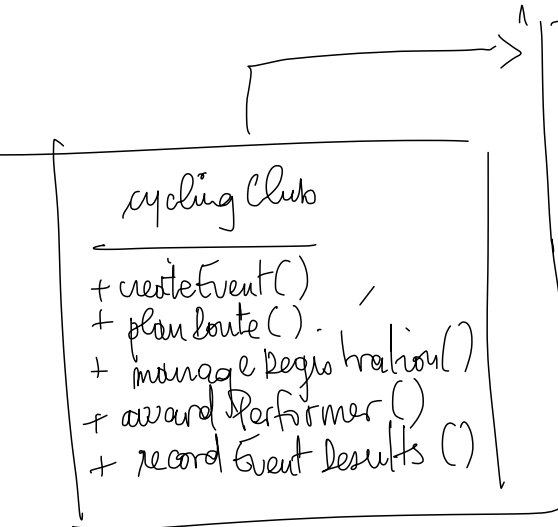 1
cycling Club
+ createEvent()
+ planRoute().
+ manageRegistration()
+ awardPerformer()
+ recordEventResults()